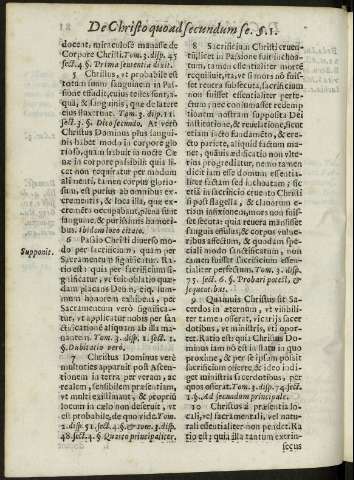 De Christo quoad secundum se. §. I.
doceat, miraculosè manasse de
Corpore Christi. Tom. 3. disp. 45
sect. 4. §. Prima sententia dixit.
5 Christus, vt probabile est
totum suum sanguinem in Pas-
sione effudit, cuius reliquis fuerit, a-
qua, & sanguis, quæ de latere
eius fluxerunt. Tom. 3. disp. 11.
sect. 3. §. Dico secundo. At verò
Christus Dominus plus sangui-
nis habet modò in corpore glo
rioso, quàm habuit in nocte Cœ
næ in corpore passibili: quia li-
cet non requiratur per modum
alimenti, tamen corpus glorio-
sum, est purius ab omnibus ex-
crementis, & loca illa, quæ ex-
cremento occupabant, plena sunt
sanguine, & purissimis humori-
bus. Ibidem loco citato.
6 Passio Christi diuerso mo-
do per sacrificium, quàm per
Sacramentum significatur. Ra-
tio est: quia per sacrificium si-
gnificatur, vt fuit oblatio quæ-
dam placans Deum, eiq; sum-
mum honorem exhibens, per
Sacramentum verò significa-
tur, vt applicatur nobis per san-
ctificationē aliquam ab illa ma-
nantem. Tom. 3. disp. 1. sect. 2.
§. Dubitatio verò.
Supponit.
7 Christus Dominus verè
multoties apparuit post Ascen-
sionem in terra per veram, ac
realem, sensibilem præsentiam,
vt multi existimant, & proprij
locum in cælo non deseruit, vt
est probabile, de quo vide Tom.
2. disp. 51. sect. 4. §. & tom. 3. disp.
48. sect. 4. § Quarto principaliter.
8 Sacrificium Christi cruen-
tū, licet in Passione fuit inchoa-
tum, tamen essentialiter mortē
requisiuit, ita, vt si mors nō fuis-
set reuera subsecuta, sacrificium
non fuisset essentialiter perfe-
ctum; nec consumasset redemp
tionem nostram supposita Dei
institutione, & reuelatione, sicut
etiam iacto fundamēto, & ere-
cto pariete, aliquid factum ma-
net, quāuis ædificatio non vlte-
rius progrediatur, nemo tamen
dicit iam esse domum essentia-
liter factam sed inchoatam; sic
etiā in sacrificio cruento Christi
post flagella, & clauorum
etiam infixionem, mors non fuis-
set secuta: quia reuera mansisset
sanguis effusus, & corpus vulne-
ribus affectum, & quodam spe-
ciali modo sanctificatum, non
tamen fuisset sacrificium essen-
tialiter perfectum. Tom. 3. disp.
75. sect. 6. §. Probari potest, &
sequentibus.
9 Quamuis Christus sit Sa-
cerdos in æternum, vt visibili-
ter tamen offerat, vicarijs sacer
dotibus, vt ministris, vti opor-
tet. Ratio est: quia Christus Do-
minus iam nō est in statu, in quo
possit homines edocere, & reli-
gione, & per se ipsum possit
sacrificium offerre, & ideo indi-
get ministris sacerdotibus, per
quos offerat. Tom. 3. disp. 74. sect.
1. §. Ad secundum principale.
10 Christus à præsentia lo-
cali, vel sacramentali, vt natu-
rali essentialiter non pēdet. Ra
tio est: quia illa tantum extrin-
secus